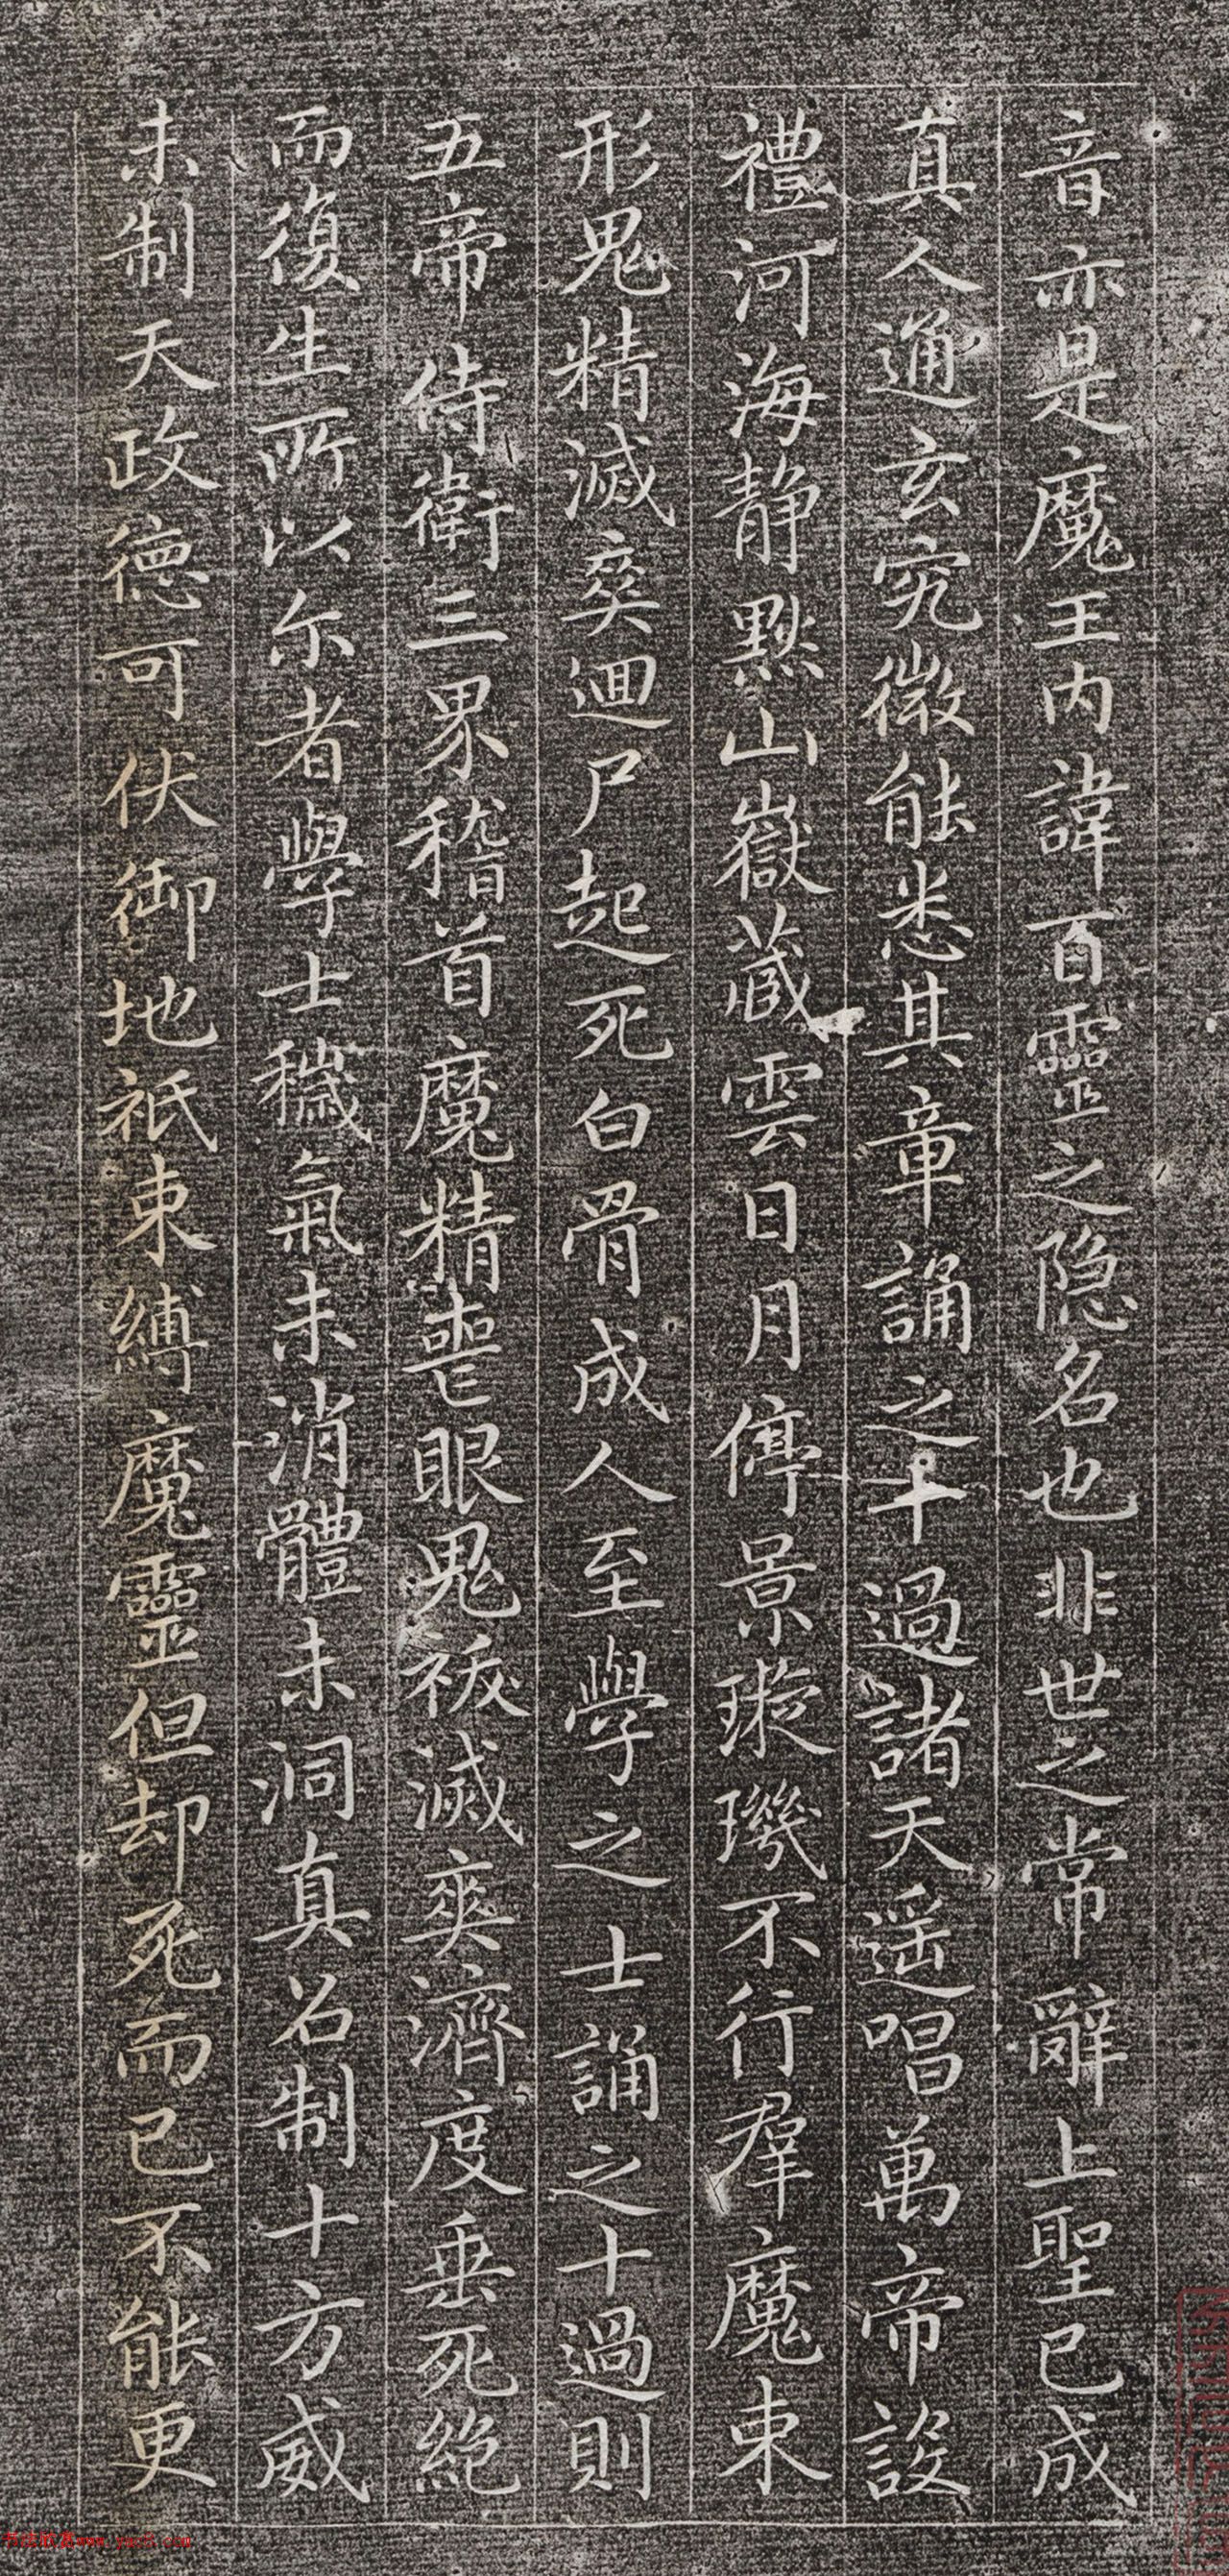 音亦是魔王内諱百靈之隐名也非世之常辭上聖已成
真人通玄究微能悉其章誦之十過諸天遥唱萬帝設
禮河海静默山嶽藏雲日月停景璇璣不行羣魔束
形鬼精滅爽迴尸起死白骨成人至學之士誦之十過則
五帝侍衛三界稽首魔精喪眼鬼祅滅爽濟度垂死絶
而復生所以尔者學士穢氣未消體未洞真名制十方威
未制天政德可伏御地祇束縛魔靈但却死而已不能更